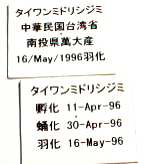 タイワンミドリシジミ
中華民国台湾省
南投県萬大産
16/May/1996羽化
タイワンミドリシジミ
孵化 11-Apr-96
蛹化 30-Apr-96
羽化 16-May-96